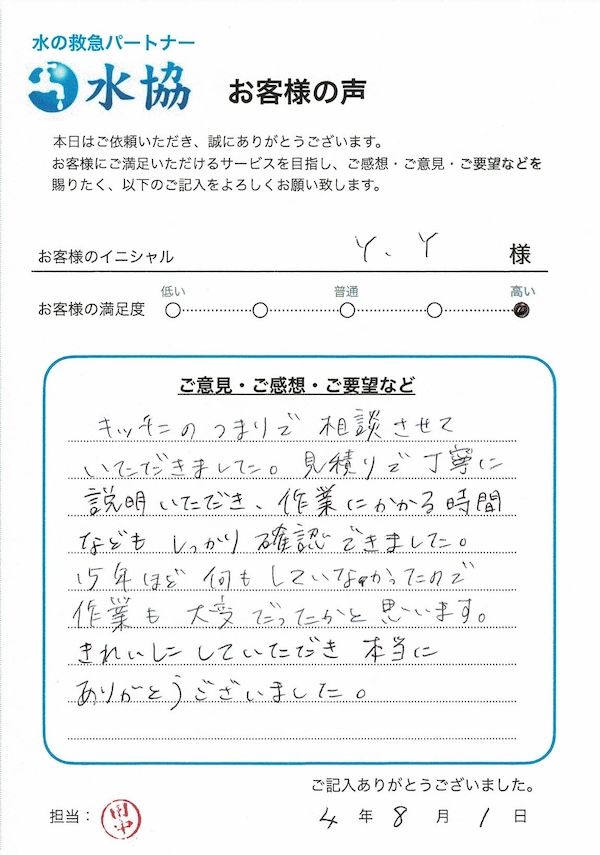 水の救急パートナー
水協 お客様の声
本日はご依頼いただき、誠にありがとうございます。
お客様にご満足いただけるサービスを目指し、ご感想・ご意見・ご要望などを
賜りたく、以下のご記入をよろしくお願い致します。
お客様のイニシャル Y、Y 様
低い 普通 高い
お客様の満足度
ご意見・ご感想・ご要望など
キッチンのつまりで 相談させて
いただきました。見積りで丁寧に
説明いただき、作業にかかる時間
なども しっかり 確認できました。
15年ほど 何もしていなかったので
作業も 大変だったかと思います。
きれいにしていただき 本当に
ありがとうございました。
ご記入ありがとうございました。
担当： 田中 4 年 8 月 1 日